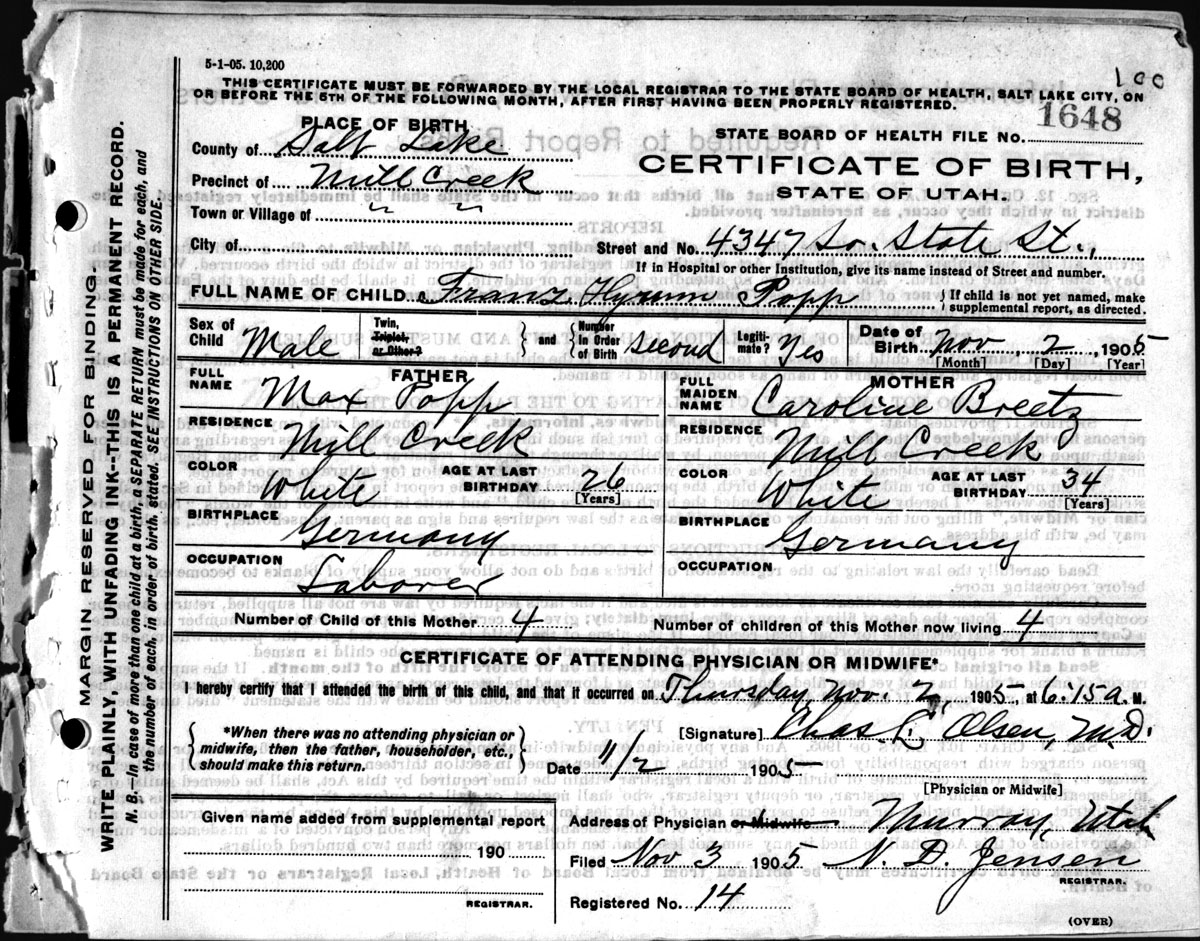 5-1-05. 10,200
100
THIS CERTIFICATE MUST BE FORWARDED BY THE LOCAL REGISTRAR TO THE STATE BOARD OF HEALTH, SALT LAKE CITY, ON
OR BEFORE THE 5TH OF THE FOLLOWING MONTH, AFTER FIRST HAVING BEEN PROPERLY REGISTERED.
PLACE OF BIRTH
STATE BOARD OF HEALTH FILE No. 1648
County of Salt Lake
CERTIFICATE OF BIRTH,
Precinct of Mill Creek
STATE OF UTAH.
Town or Village of " "
City of
Street and No. 4347 So. State St.,
If in Hospital or other Institution, give its name instead of Street and number.
FULL NAME OF CHILD Franz Hyrum Popp
If child is not yet named, make supplemental report, as directed.
Sex of Child Male
Twin, Triplet, or Other? and Number in Order of Birth second
Legitimate? Yes
Date of Birth Nov, 2, 1905
[Month] [Day] [Year]
FATHER
FULL NAME Max Popp
RESIDENCE Mill Creek
COLOR White
AGE AT LAST BIRTHDAY 26
[Years]
BIRTHPLACE Germany
OCCUPATION Laborer
MOTHER
FULL MAIDEN NAME Caroline Breetz
RESIDENCE Mill Creek
COLOR White
AGE AT LAST BIRTHDAY 34
[Years]
BIRTHPLACE Germany
OCCUPATION
Number of Child of this Mother 4
Number of children of this Mother now living 4
CERTIFICATE OF ATTENDING PHYSICIAN OR MIDWIFE*
I hereby certify that I attended the birth of this child, and that it occurred on Thursday, Nov. 2, 1905, at 6:15 a. M.
*When there was no attending physician or
midwife, then the father, householder, etc.,
should make this return.
[Signature] Chas C. Olsen, M.D.
Date 11/2 1905
[Physician or Midwife]
Given name added from supplemental report
190
REGISTRAR.
Address of Physician or Midwife Murray, Utah
Filed Nov 3 1905 N. D. Jensen
REGISTRAR.
Registered No. 14
(OVER)
MARGIN RESERVED FOR BINDING.
WRITE PLAINLY WITH UNFADING INK--THIS IS A PERMANENT RECORD.
N. B.--In case of more than one child at a birth, a SEPARATE RETURN must be made for each, and
the number of each, in order of birth, stated. SEE INSTRUCTIONS ON OTHER SIDE.